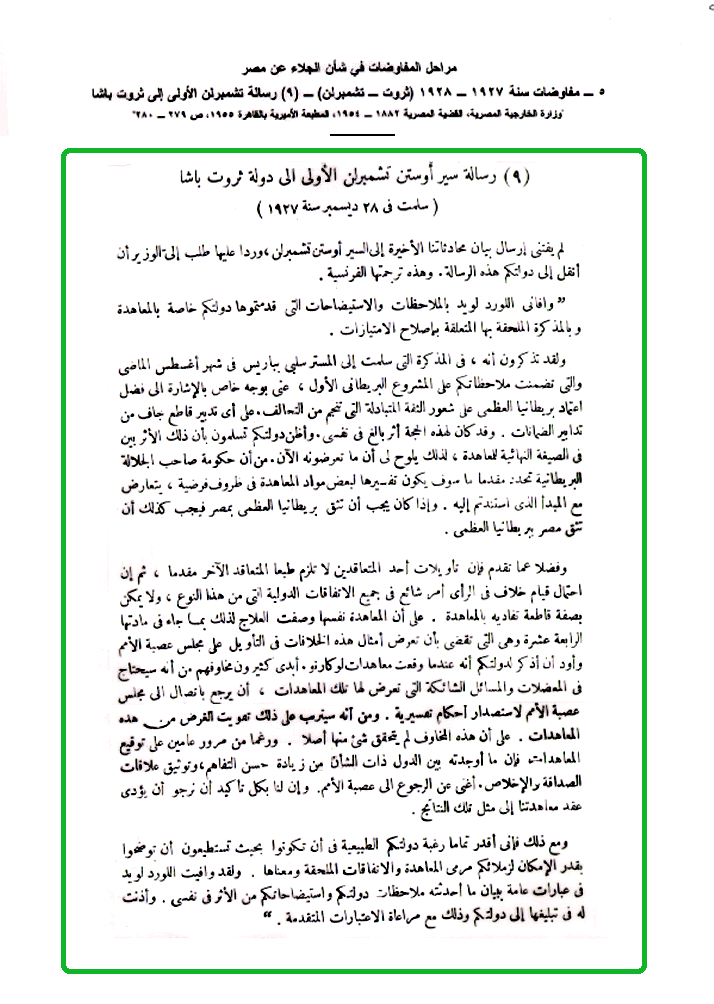 مراحل المفاوضات في شأن الجلاء عن مصر
٥ ــ مفاوضات سنة ١٩٢٧ ــ ١٩٢٨ (ثروت ــ تشمبرلن) ــ (٩) رسالة تشمبرلن الأولى إلى ثروت باشا
"وزارة الخارجية المصرية، القضية المصرية ١٨٨٢ ــ ١٩٥٤، المطبعة الأميرية بالقاهرة ١٩٥٥، ص ٢٧٩ ــ ٢٨٠"
(٩) رسالة سير أوستن تشمبرلن الأولى الى دولة ثروت باشا
( سلمت فى ٢٨ ديسمبر سنة ١٩٢٧ )
لم يفتنى إرسال بيان محادثاتنا الأخيرة إلى السير أوستن تشمبرلن، وردا عليها طلب إلى الوزير أن
أنقل إلى دولتكم هذه الرسالة . وهذه ترجمتها الفرنسية .
" وافانى اللورد لويد بالملاحظات والاستيضاحات التى قدمتموها دولتكم خاصة بالمعاهدة
وبالمذكرة الملحقة بها المتعلقة بإصلاح الامتيازات .
ولقد تذكرون أنه ، فى المذكرة التى سلمت إلى المستر سلبي بباريس فى شهر أغسطس الماضى
والتى تضمنت ملاحظاتكم على المشروع البريطانى الأول ، عنى بوجه خاص بالإشارة الى فضل
اعتماد بريطانيا العظمى على شعور الثقة المتبادلة التى تنجم من التحالف . على أى تدبير قاطع جاف من
تدابير الضمانات . وقد كان لهذه الحجة أثر بالغ فى نفسى . وأظن دولتكم تسلمون بأن ذلك الأثر بين
فى الصيغة النهائية للمعاهدة ، لذلك يلوح لى أن ما تعرضونه الآن . من أن حكومة صاحب الجلالة
البريطانية تحدد مقدما ما سوف يكون تفسيرها لبعض مواد المعاهدة فى ظروف فرضية ، يتعارض
مع المبدأ الذى استندتم إليه . وإذا كان يجب أن تثق بريطانيا العظمى بمصر فيجب كذلك أن
تثق مصر ببريطانيا العظمى .
وفضلا عما تقدم فإن تأويلات أحد المتعاقدين لا تلزم طبعا المتعاقد الآخر مقدما ، ثم إن
احتمال قيام خلاف فى الرأى أمر شائع فى جميع الاتفاقات الدولية التى من هذا النوع ، ولا يمكن
بصفة قاطعة تفاديه بالمعاهدة . على أن المعاهدة نفسها وصفت العلاج لذلك بما جاء فى مادتها
الرابعة عشرة وهى التى تقضى بأن تعرض أمثال هذه الخلافات فى التأويل على مجلس عصبة الأمم
وأود أن أذكر لدولتكم أنه عندما وقعت معاهدات لوكارنو . أبدى كثيرون مخاوفهم من أنه سيحتاج
فى المعضلات والمسائل الشائكة التى تعرض لها تلك المعاهدات ، أن يرجع باتصال الى مجلس
عصبة الأمم لاستصدار أحكام تفسيرية . ومن أنه سيترتب على ذلك تفويت الغرض من هذه
المعاهدات . على أن هذه المخاوف لم يتحقق شئ منها أصلا . ورغما من مرور عامين على توقيع
المعاهدات فإن ما أوجدته بين الدول ذات الشأن من زيادة حسن التفاهم، وتوثيق علاقات
الصداقة والإخلاص . أغنى عن الرجوع الى عصبة الأمم . وإن لنا بكل تأكيد أن نرجو أن يؤدى
عقد معاهدتنا إلى مثل تلك النتائج .
ومع ذلك فإنى أقدر تماما رغبة دولتكم الطبيعية فى أن تكونوا بحيث تستطيعون أن توضحوا
بقدر الإمكان لزملائكم مرمى المعاهدة والاتفاقات الملحقة ومعناها . ولقد وافيت اللورد لويد
فى عبارات عامة ببيان ما أحدثته ملاحظات دولتكم واستيضاحاتكم من الأثر فى نفسى . وأذنت
له فى تبليغها إلى دولتكم وذلك مع مراعاة الاعتبارات المتقدمة . "